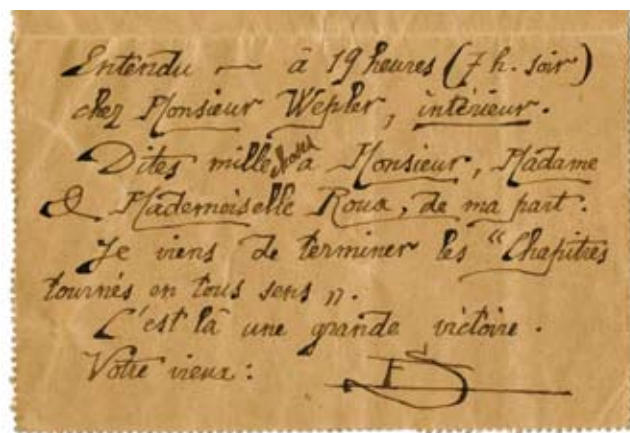 Entendu — à 19 heures (7 h. soir)
chez Monsieur Wepler, intérieur.
Dites mille choses à Monsieur, Madame
& Mademoiselle Roux, de ma part.
Je viens de terminer les “Chapitres
tournés en tous sens”.
C'est là une grande victoire.
Votre vieux : ES